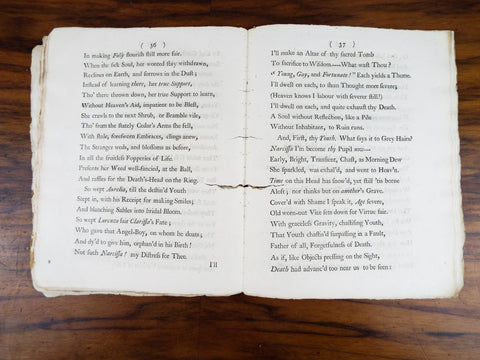 ( 36 )
In making Folly flourish still more fair.
When the sick Soul, her wonted stay withdrawn,
Reclines on Earth, and sorrows in the Dust;
Instead of learning there, her true Support,
Tho' there thrown down, her true Support to learn,
Without Heaven's Aid, impatient to be Blest,
She crawls to the next Shrub, or Bramble vile,
Tho' from the stately Cedar's Arms she fell,
With stale, foresworn Embraces, clings anew,
The Stranger weds, and blossoms as before,
In all the fruitless Fopperies of Life.
Presents her Weed well-fancied, at the Ball,
And raffles for the Death's-Head on the Ring.
So wept Aurelia, till the destin'd Youth
Stept in, with his Receipt for making Smiles;
And blanching Sables into bridal Bloom.
So wept Lorenzo fair Clarissa's Fate;
Who gave that Angel-Boy, on whom he doats;
And dy'd to give him, orphan'd in his Birth!
Not such Narcissa! my Distress for Thee.
I'll
( 37 )
I'll make an Altar of thy sacred Tomb
To sacrifice to Wisdom.—What wast Thou?
" Young, Gay, and Fortunate! " Each yields a Theme.
I'll dwell on each, to shun Thought more severe;
(Heaven knows I labour with severer still!)
I'll dwell on each, and quite exhaust thy Death.
A Soul without Reflection, like a Pile
Without Inhabitant, to Ruin runs.
And, First, thy Youth. What says it to Grey Hairs?
Narcissa I'm become thy Pupil now—
Early, Bright, Transient, Chast, as Morning Dew
She sparkled, was exhal'd, and went to Heav'n.
Time on this Head has snow'd, yet still 'tis borne
Aloft; nor thinks but on another's Grave.
Cover'd with Shame I speak it, Age severe,
Old worn-out Vice sets down for Virtue fair.
With graceless Gravity, chastising Youth,
That Youth chastis'd surpassing in a Fault,
Father of all, Forgetfulness of Death.
As if, like Objects pressing on the Sight,
Death had advanc'd too near us to be seen: